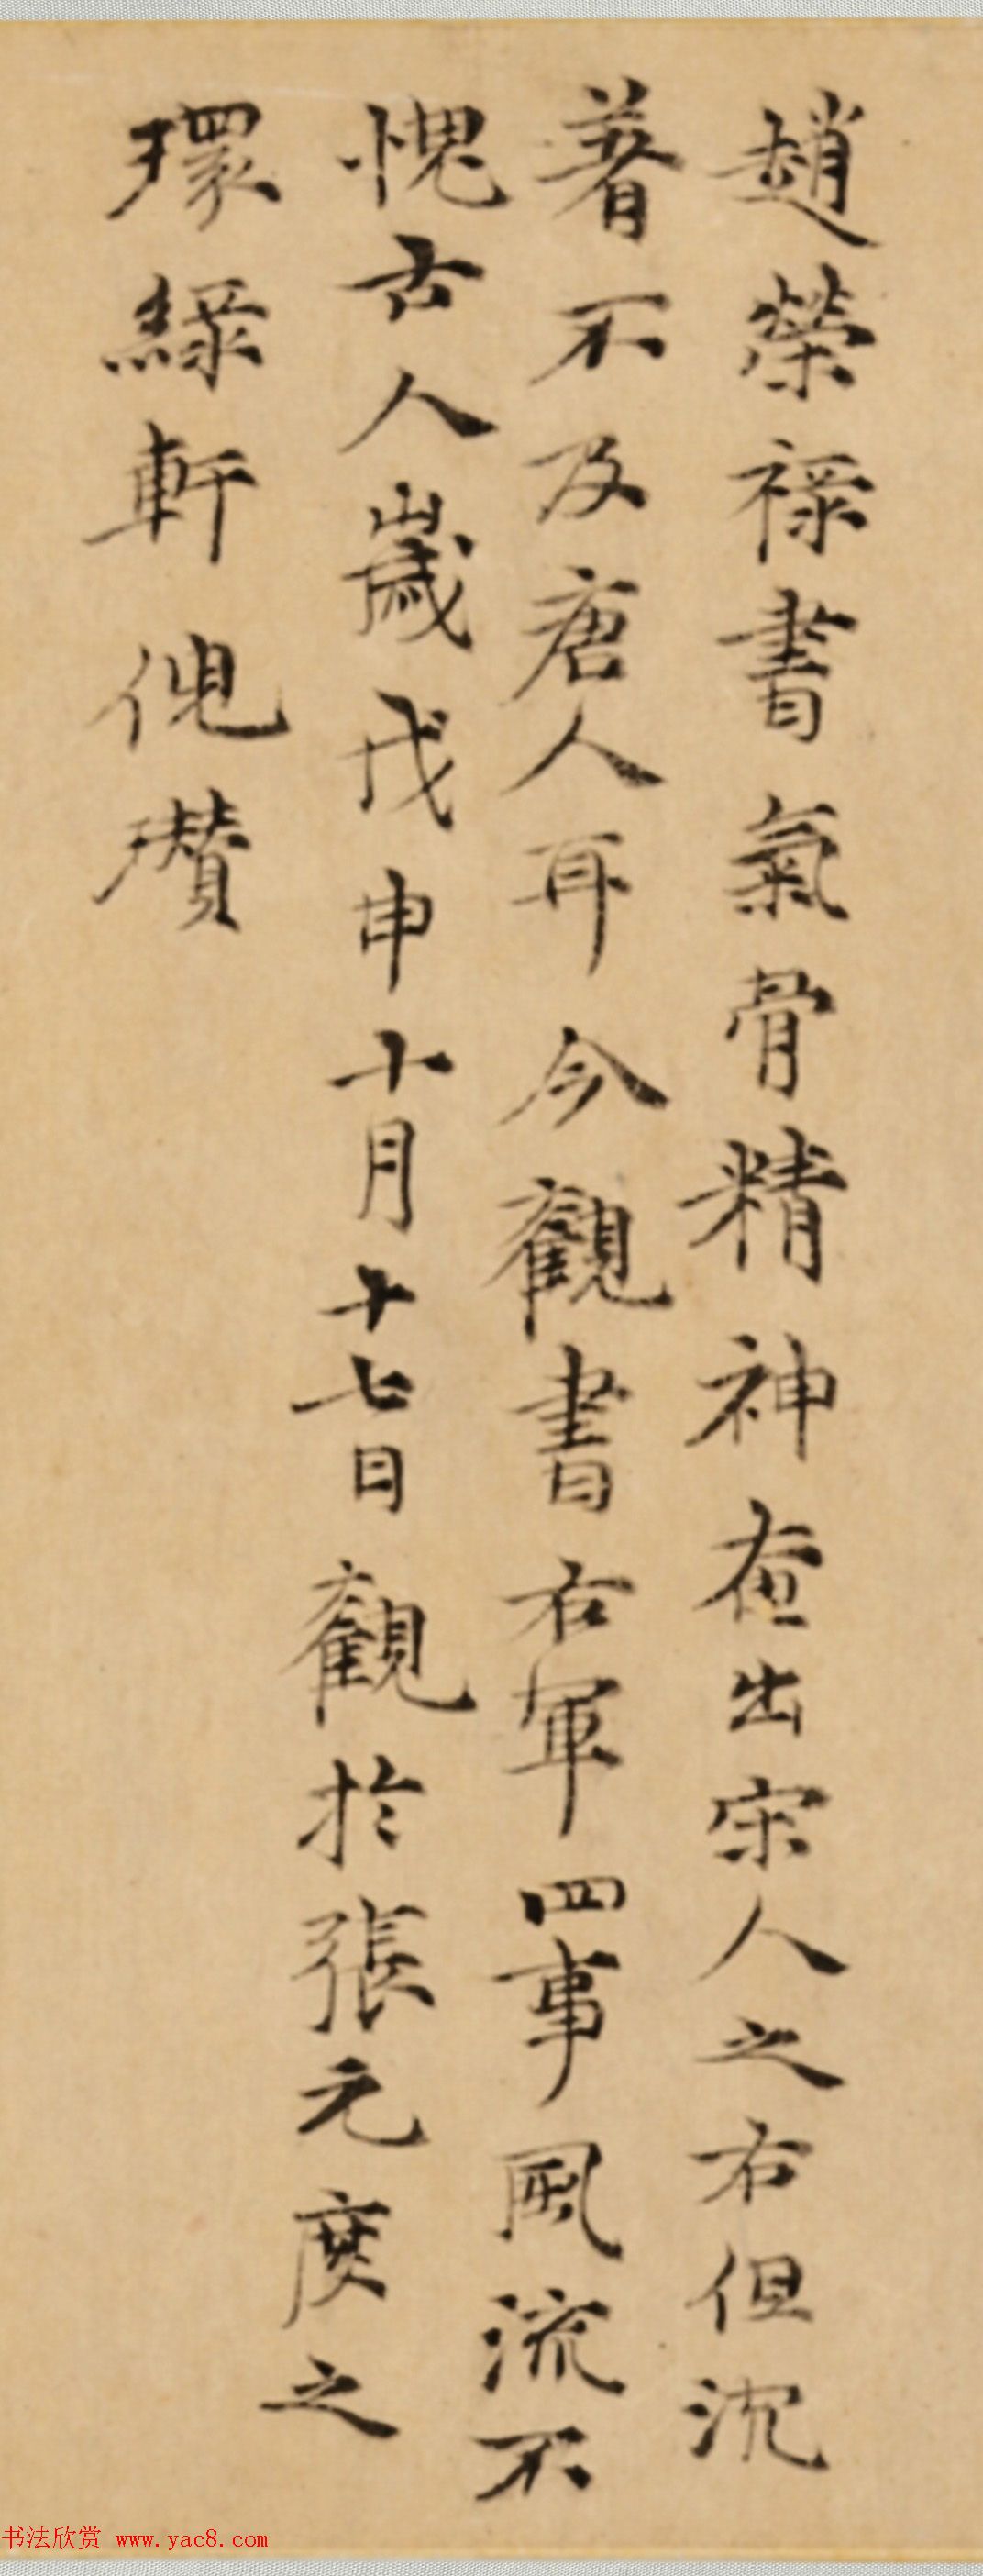 趙榮祿書氣骨精神奄出宋人之右但沈
著不及唐人耳今觀書右軍四事風流不
愧古人歲戊申十月十七日觀於張元度之
環綠軒倪瓚
书法欣赏 www.yac8.com